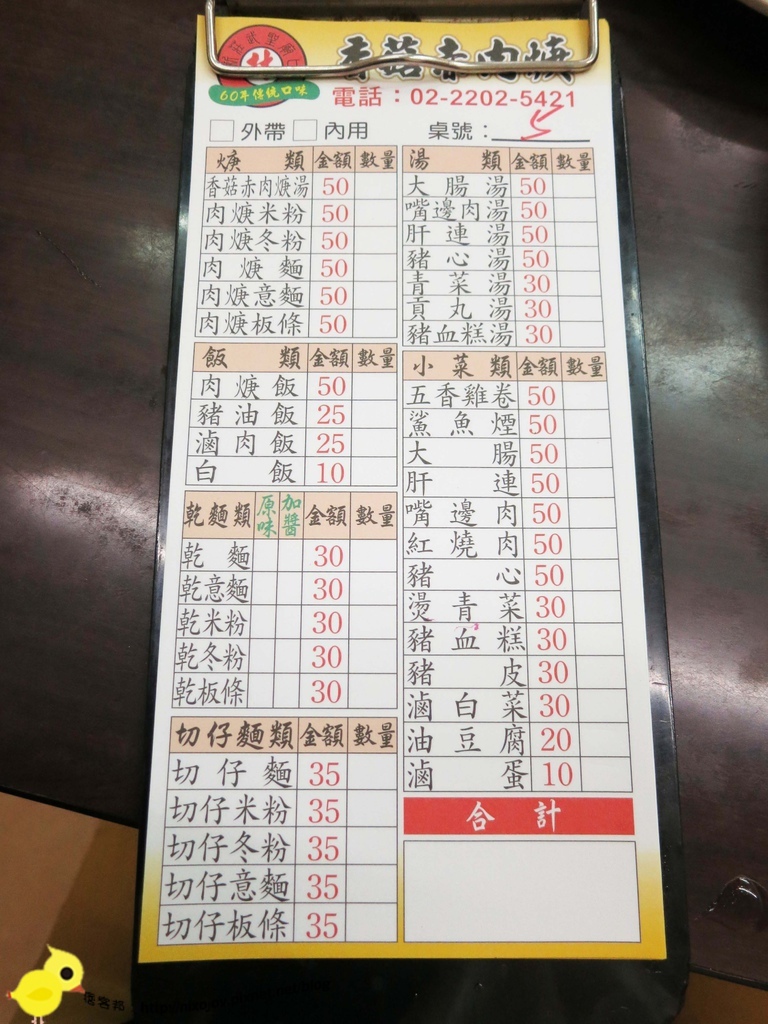 60年傳統口味
香菇赤肉焿
電話：02-2202-5421
外帶 內用 桌號： 5
焿類 金額 數量
香菇赤肉焿湯 50
肉焿米粉 50
肉焿冬粉 50
肉焿麵 50
肉焿意麵 50
肉焿板條 50
飯類 金額 數量
肉焿飯 50
豬油飯 25
滷肉飯 25
白飯 10
乾麵類 原味 加醬 金額 數量
乾麵 30
乾意麵 30
乾米粉 30
乾冬粉 30
乾板條 30
切仔麵類 金額 數量
切仔麵 35
切仔米粉 35
切仔冬粉 35
切仔意麵 35
切仔板條 35
湯類 金額 數量
大腸湯 50
嘴邊肉湯 50
肝連湯 50
豬心湯 50
青菜湯 30
貢丸湯 30
豬血糕湯 30
小菜類 金額 數量
五香雞卷 50
鯊魚煙 50
大腸 50
肝連 50
嘴邊肉 50
紅燒肉 50
豬心 50
燙青菜 30
豬血糕 30
豬皮 30
滷白菜 30
油豆腐 20
滷蛋 10
合計